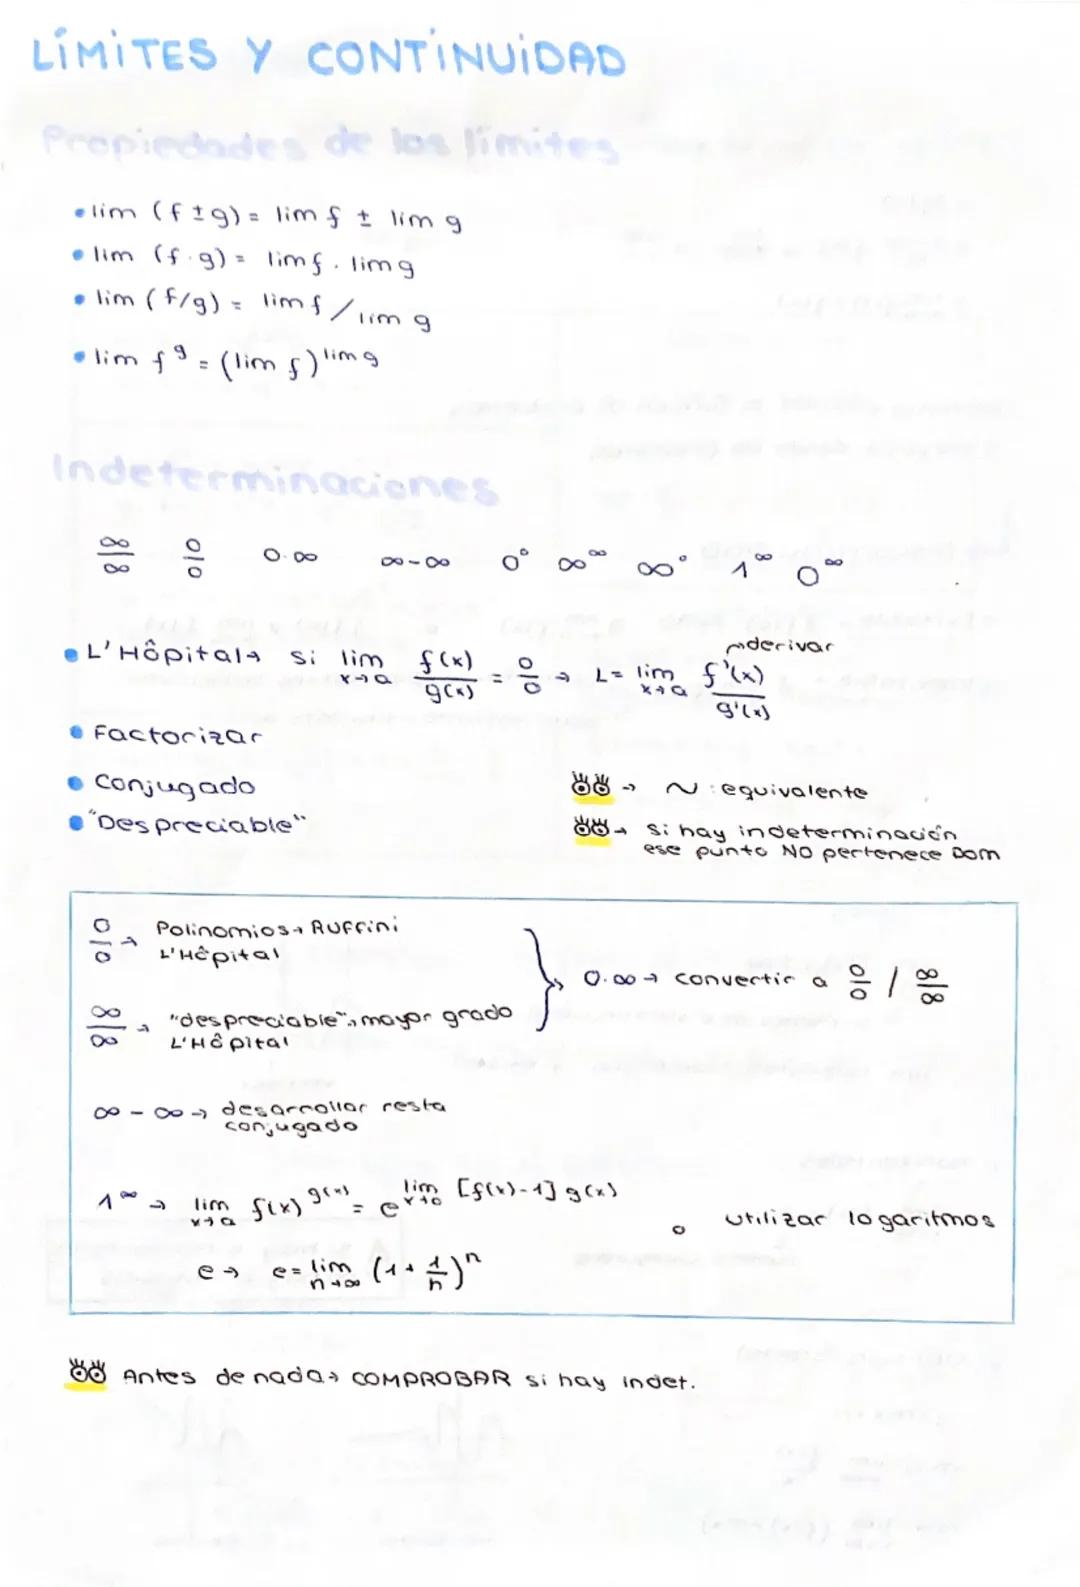 LÍMITES Y CONTINUIDAD
Propiedades de los límites
• lim (f ± g) = lim f ± lim g
• lim (f · g) = lim f . lim g
• lim (f/g) = lim f / lim g
• lim f^g = (lim f)^lim g
Indeterminaciones
∞/∞ 0/0 0·∞ ∞-∞ 0⁰ ∞^∞ ∞⁰ 1^∞ 0^∞
• L'Hôpital → si lim x→a f(x)/g(x) = 0/0 → L = lim x→a f'(x)/g'(x) → derivar
• Factorizar
• Conjugado
• "Despreciable"
→ ~ : equivalente
→ si hay indeterminación
ese punto NO pertenece Dom
0/0 → Polinomios → Ruffini
L'Hôpital
∞/∞ → "despreciable", mayor grado
L'Hôpital
} 0·∞ → convertir a 0/0 / ∞/∞
∞ - ∞ → desarrollar resta
conjugado
1^∞ → lim x→a f(x)^g(x) = e^lim x→a [f(x)-1] g(x)
o utilizar logaritmos
e → e = lim n→∞ (1 + 1/n)^n
Antes de nada → COMPROBAR si hay indet.